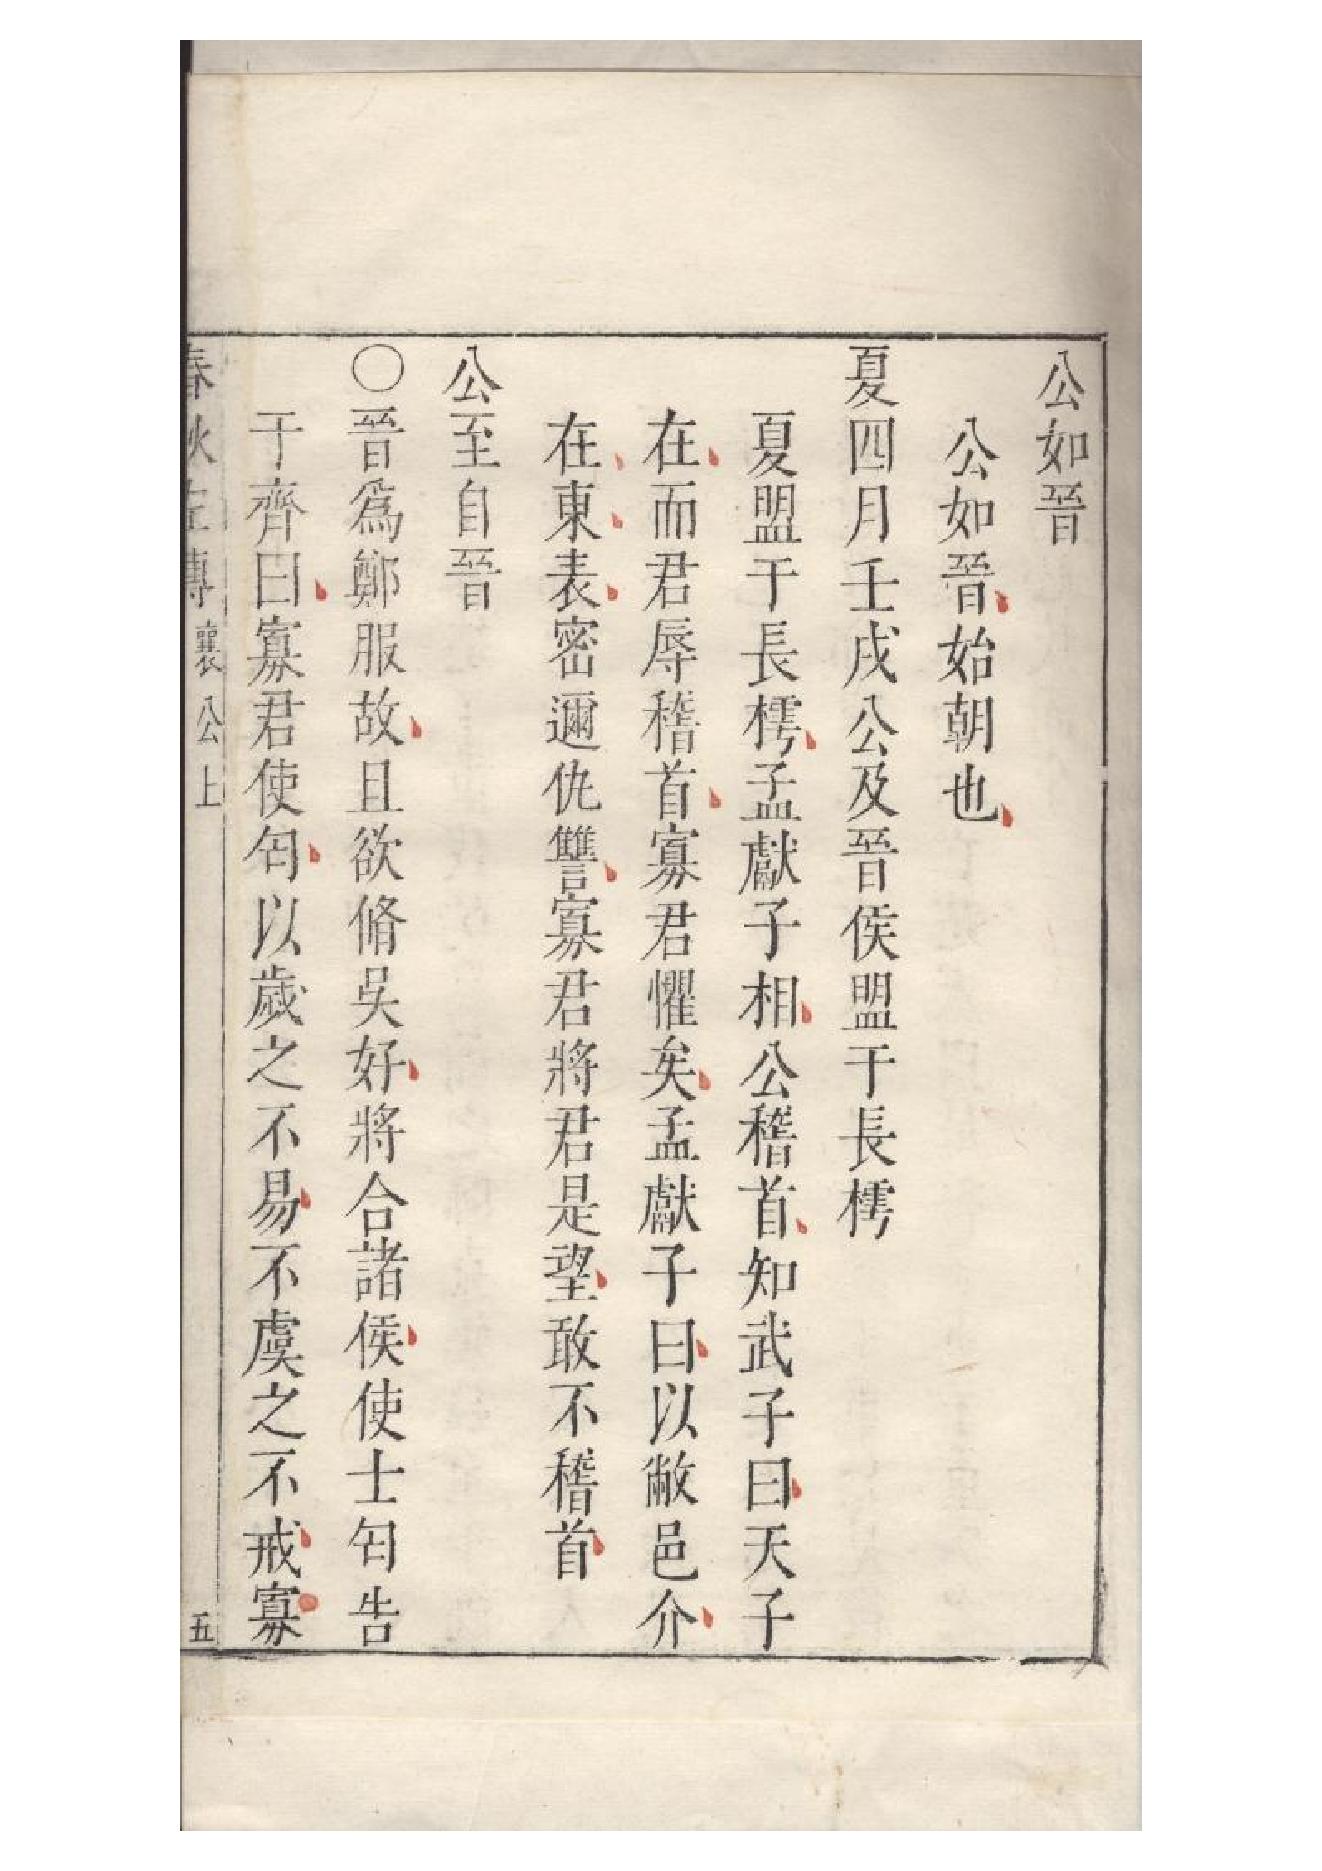 公如晉
公如晉始朝也
夏四月壬戌公及晉侯盟于長樗
夏盟于長樗孟獻子相公稽首知武子曰天子
在而君辱稽首寡君懼矣孟獻子曰以敝邑介
在東表密邇仇讐寡君將君是望敢不稽首
公至自晉
〇晉爲鄭服故且欲脩吳好將合諸侯使士匄告
于齊曰寡君使匄以歲之不易不虞之不戒寡
春秋左傳襄公上 五